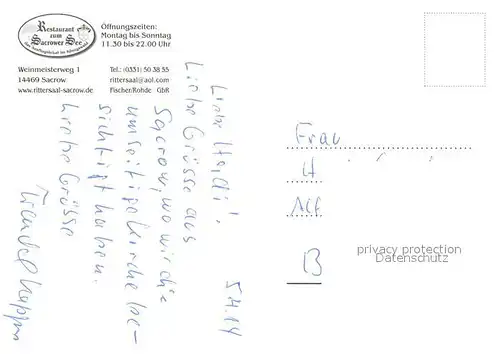 Restaurant
zum
Sacrower See
Öffnungszeiten:
Montag bis Sonntag
11.30 bis 22.00 Uhr
Weinmeisterweg 1
14469 Sacrow
www.rittersaal-sacrow.de
Tel.: (0331) 50 38 55
rittersaal@aol.com
Fischer/Rohde GbR
5.4.14
Liebe Heidi!
Liebe Grüsse aus
Sacrow, wo wir die
umseitige Kirche be-
sichtigt haben.
Liebe Grüsse
Frau
H
Alf
B
privacy protection
Datenschutz